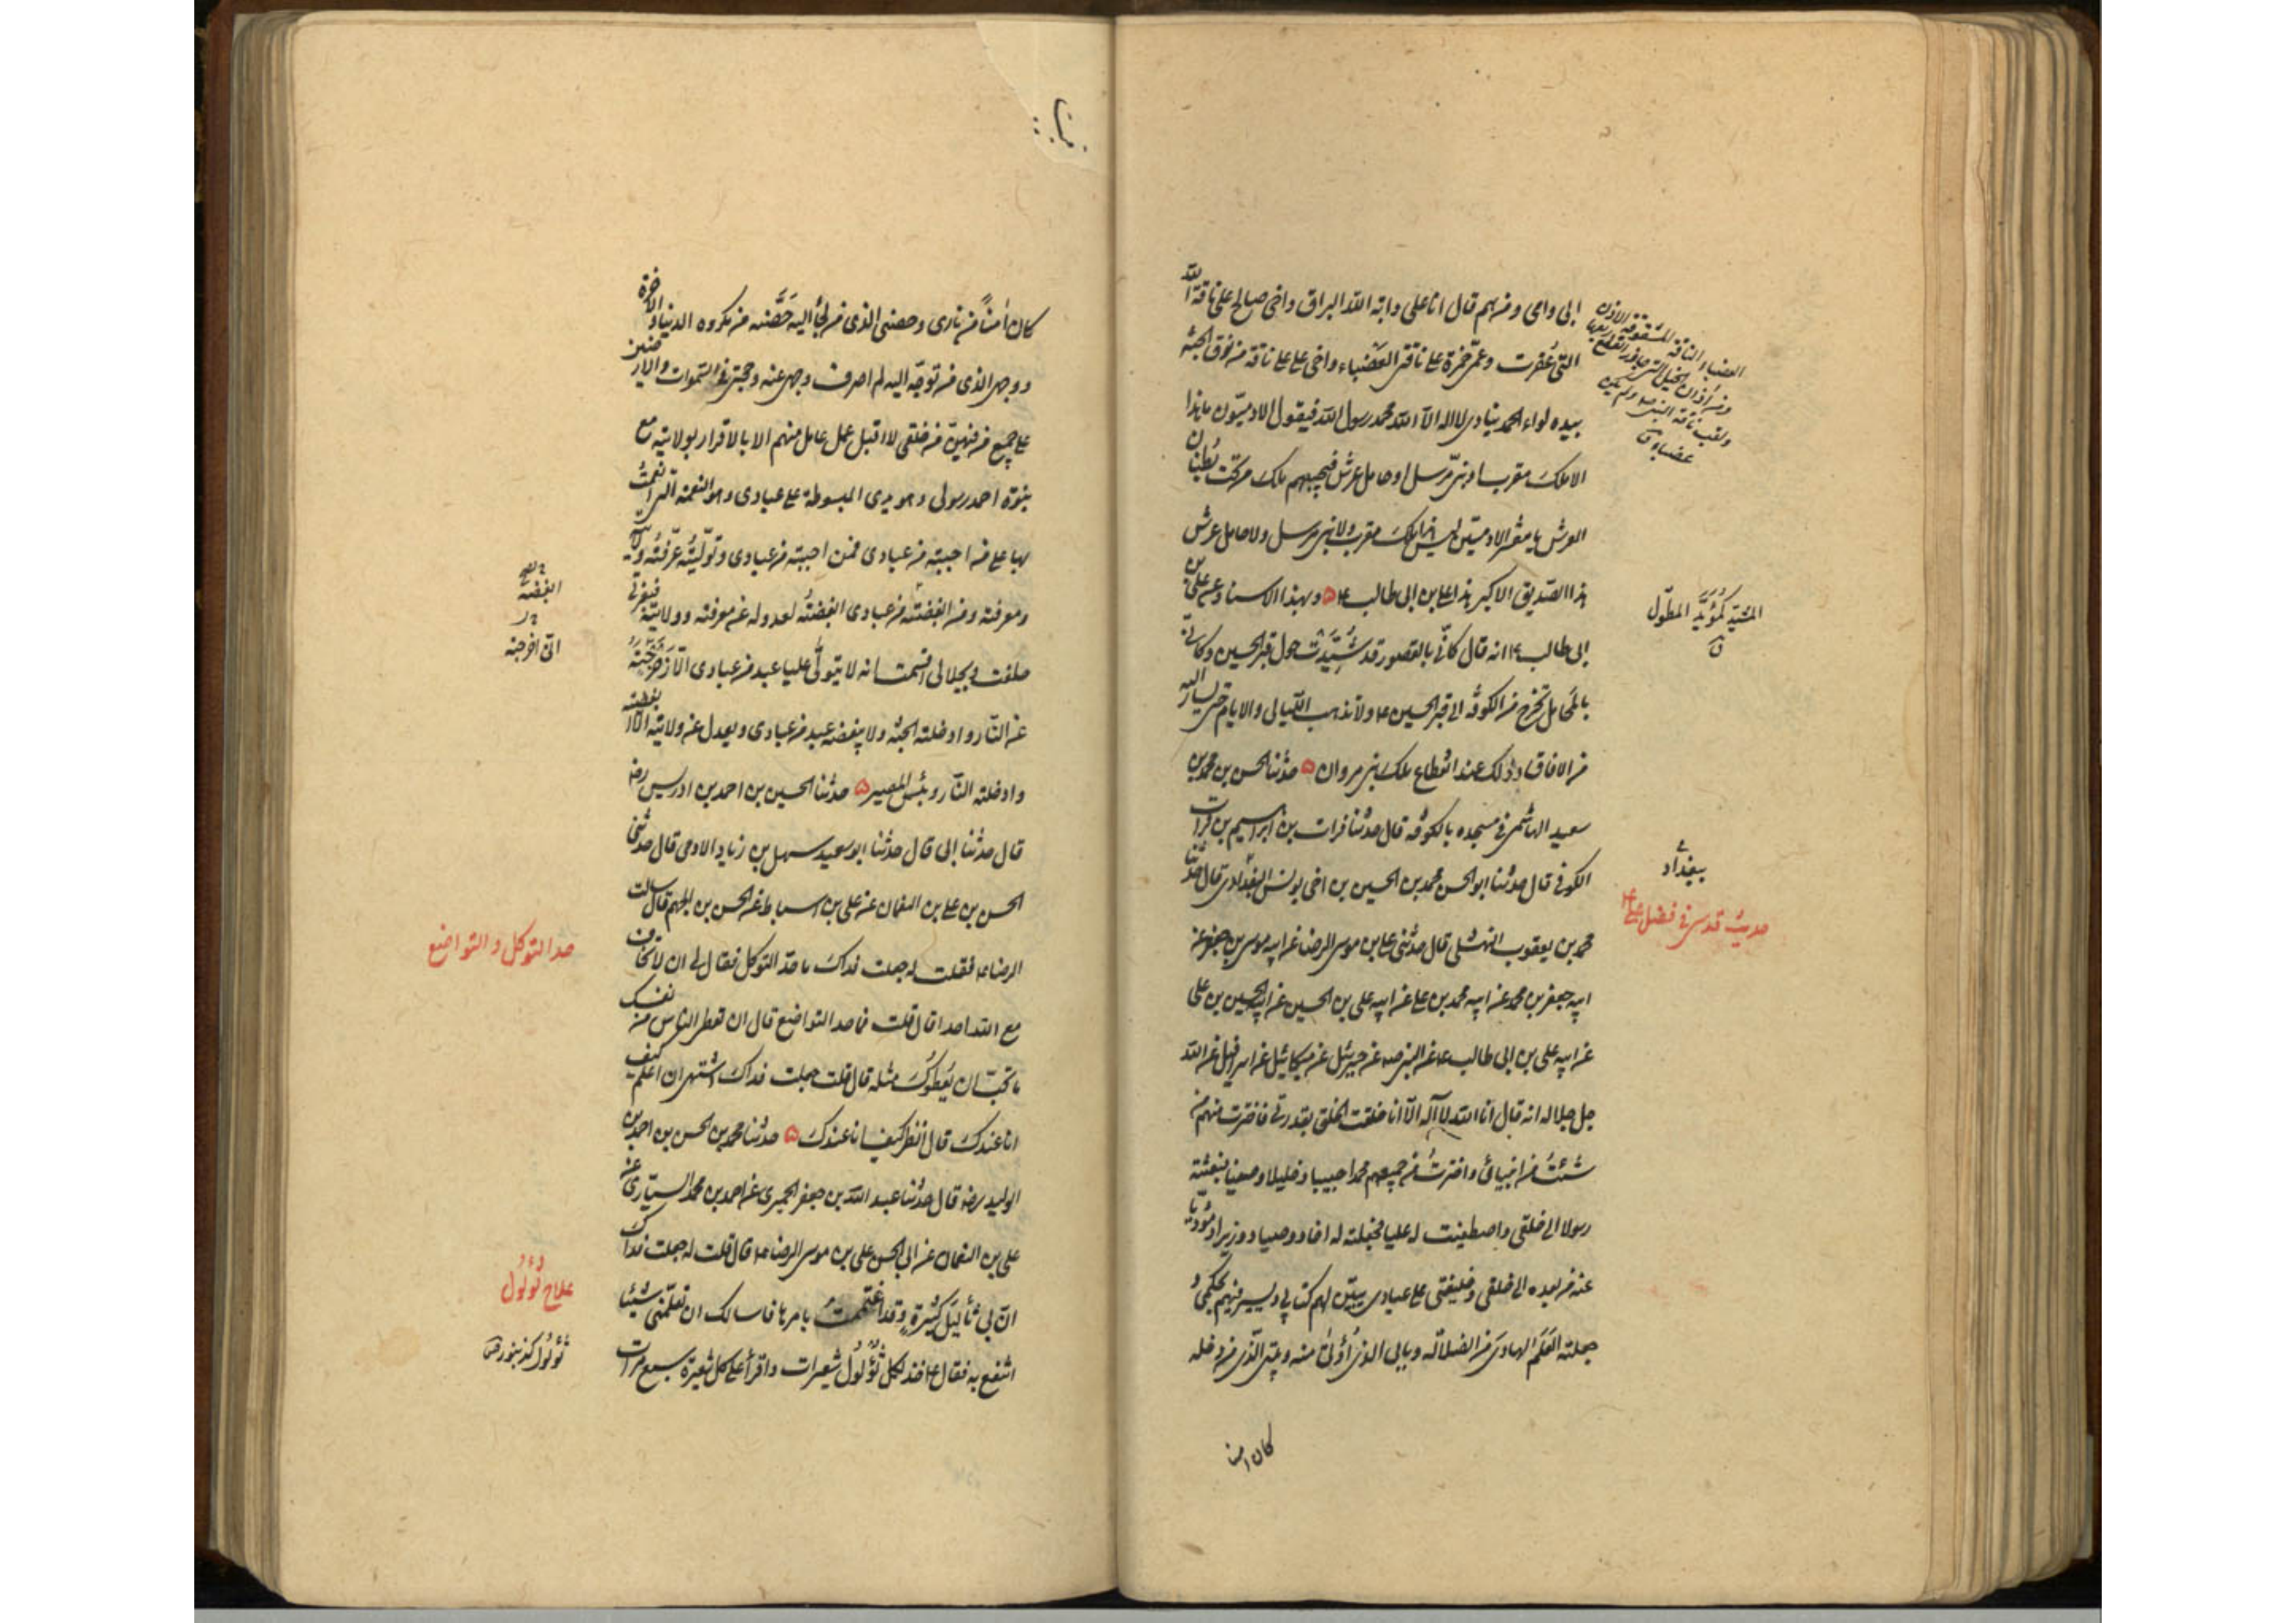 ابی وامی ومن هم قال انا علی دابة الله البراق واخی صالح علی ناقة الله
التی عُقرت وعمّی حمزة علی ناقتی العَضْباء واخی علی علی ناقة من نوق الجنّة
بیده لواء الحمد ینادی لا اله الا الله محمد رسول الله فیقول الآدمیّون ما هذا
الا ملک مقرب او نبیّ مرسل او حامل عرش فیجیبهم ملک من تحت بُطنان
العرش یا معشر الآدمیّین لیس هذا ملک مقرب ولا نبی مرسل ولا حامل عرش
هذا الصّدیق الاکبر هذا علی بن ابی طالب ع ۵ وبهذا الاسناد عن علی بن
ابی طالب ع انه قال کانّی بالقصور قد شُیّدَت حول قبر الحسین وکانّی
بالمحَامل تخرج من الکوفة الی قبر الحسین ع ولا تذهب اللّیالی والایام حتی یسار الیه
من الآفاق وذلک عند انقطاع ملک بنی مروان ۵ حدّثنا الحسن بن محمد بن
سعید الهاشمی فی مسجده بالکوفة قال حدثنا فرات بن ابراهیم بن فرات
الکوفی قال حدثنا ابو الحسن محمد بن الحسین بن اخی یونس البغدادی قال حدثنا
محمد بن یعقوب النهشلی قال حدثنی علی بن موسی الرضا عن ابیه موسی بن جعفر عن
ابیه جعفر بن محمد عن ابیه محمد بن علی عن ابیه علی بن الحسین عن ابیه الحسین بن علی
عن ابیه علی بن ابی طالب ع عن النبی ص عن جبرئیل عن میکائیل عن اسرافیل عن الله
جل جلاله انه قال انا الله لا اله الّا انا خلقت الخلق بقدرتی فاخترت منهم من
شئتُ من انبیائی واخترتُ من جمیعهم محمدا حبیبا وخلیلا وصفیا بنعثته
رسولا الی خلقی واصطفیت له علیا فجعلته له اخا ووصیا ووزیرا ومُؤدّیا
عنه من بعده الی خلقی وخلیفتی علی عبادی یبیّن لهم کتابی ویسیر فیهم بحکمی و
جعلته العَلَم الهادی من الضلالة وبابی الذی اُوْتیٰ منه وبیتی الّذی من دخله
کان امنا
العضباء الناقة المشقوقة الاذن
ولقب ناقة النبی ص ولم تکن
عضباء ق
المُشَیّد کمُؤَیَّد المطوّل
ق
ببغداد
حدیث قدسی فی فضل علی ع
کان اٰمناً من ناری وحصنی الذی من لجأ الیه حَصَّنته من مکروه الدنیا والاخرة
ووجهی الذی من توجّه الیه لم اصرف وجهی عنه وحجتی فی السّموات والارضین
علی جمیع من فیهنّ من خلقی لا اقبل عمل عامل منهم الا بالاقرار بولایته مع
بنوّة احمد رسولی وهو یدی المبسوطة علی عبادی وهو النعمة التی انعمتُ
بها علی من احببته من عبادی فمن احببته من عبادی وتولّیتُه عرّفتُه ولایته
ومعرفته ومن ابغضته من عبادی ابغضتُه لعدوله عن معرفته وولایته فبعزّتی
حلفت وبجلالی اقسمت انه لا یتولّی علیا عبد من عبادی الّا زحزحَتُه
عن النّار وادخلته الجنّة ولا یبغضه عبد من عبادی ویعدل عن ولایته الّا ابغضته
وادخلته النّار وبئس المصیر ۵ حدثنا الحسین بن احمد بن ادریس رض
قال حدّثنا ابی قال حدثنا ابو سعید سهل بن زیاد الادمی قال حدثنی
الحسن بن علی بن النعمان عن علی بن اسباط عن الحسن بن الجهم قال سالت
الرضا ع فقلت له جعلت فداک ما حدّ التوکل فقال لی ان لا تخاف
مع الله احدا قال قلت فما حد التواضع قال ان تعطی الناس من نفسک
ما تحبّ ان یُعطوکَ مثله قال قلت جعلت فداک اشتهی ان اعلم کیف
انا عندک قال اُنظر کیف انا عندکَ ۵ حدثنا محمد بن الحسن بن احمد بن
الولید رض قال حدّثنا عبد الله بن جعفر الحمیری عن احمد بن محمد السیّاری عن
علی بن النعمان عن ابی الحسن علی بن موسی الرضا ع قال قلت له جعلت فداک
انّ بی ثآلیلَ کثیرة وقد اغتممتُ بامرها فاسالک ان تعلّمنی شیئا
انتفع به فقال ع خذ لکل ثُؤْلُول شعیرات واقرأ علی کل شعیرة سبع مرات
ابغضته
انی اخرجته
حد التوکل والتواضع
علاج ثُؤْلُول
ثُؤْلُول کزنبور ق